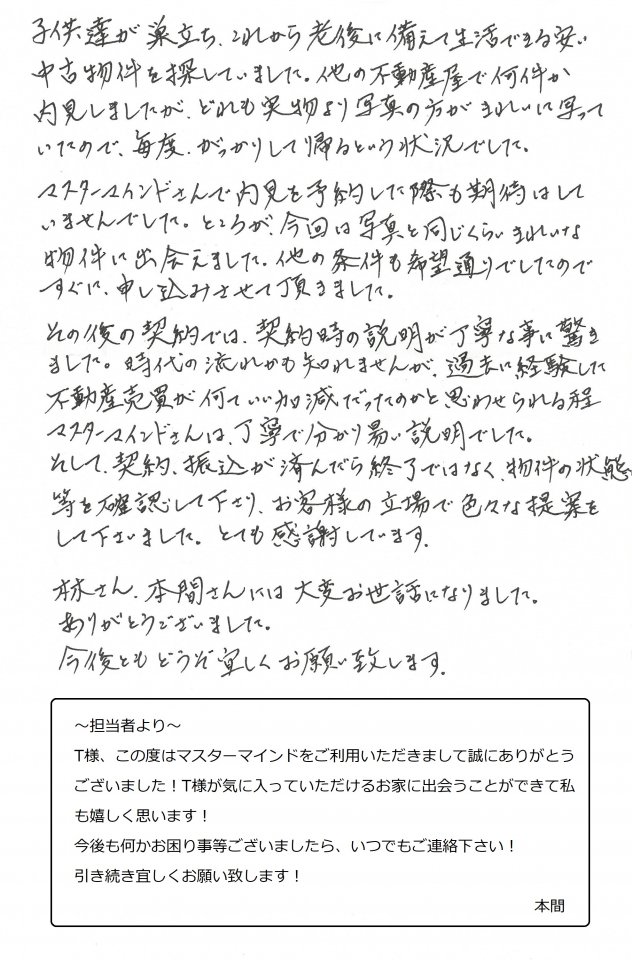 子供達が巣立ち、これから老後に備えて生活できる安い
中古物件を探していました。他の不動産屋で何件か
内見しましたが、どれも実物より写真の方がきれいに写って
いたので、毎度、がっかりして帰るという状況でした。
マスターマインドさんで内見を予約した際も期待はして
いませんでした。ところが、今回は写真と同じくらいきれいな
物件に出会えました。他の条件も希望通りでしたので
すぐに、申し込みさせて頂きました。
その後の契約では、契約時の説明が丁寧な事に驚き
ました。時代の流れかも知れませんが、過去に経験した
不動産売買が何ていい加減だったのかと思わせられる程
マスターマインドさんは、丁寧で分かり易い説明でした。
そして、契約、振込が済んだら終了ではなく、物件の状態
等を確認して下さり、お客様の立場で色々な提案を
して下さいました。とても感謝しています。
林さん、本間さんには大変お世話になりました。
ありがとうございました。
今後ともどうぞ宜しくお願い致します。
～担当者より～
T様、この度はマスターマインドをご利用いただきまして誠にありがとう
ございました！T様が気に入っていただけるお家に出会うことができて私
も嬉しく思います！
今後も何かお困り事等ございましたら、いつでもご連絡下さい！
引き続き宜しくお願い致します！
本間